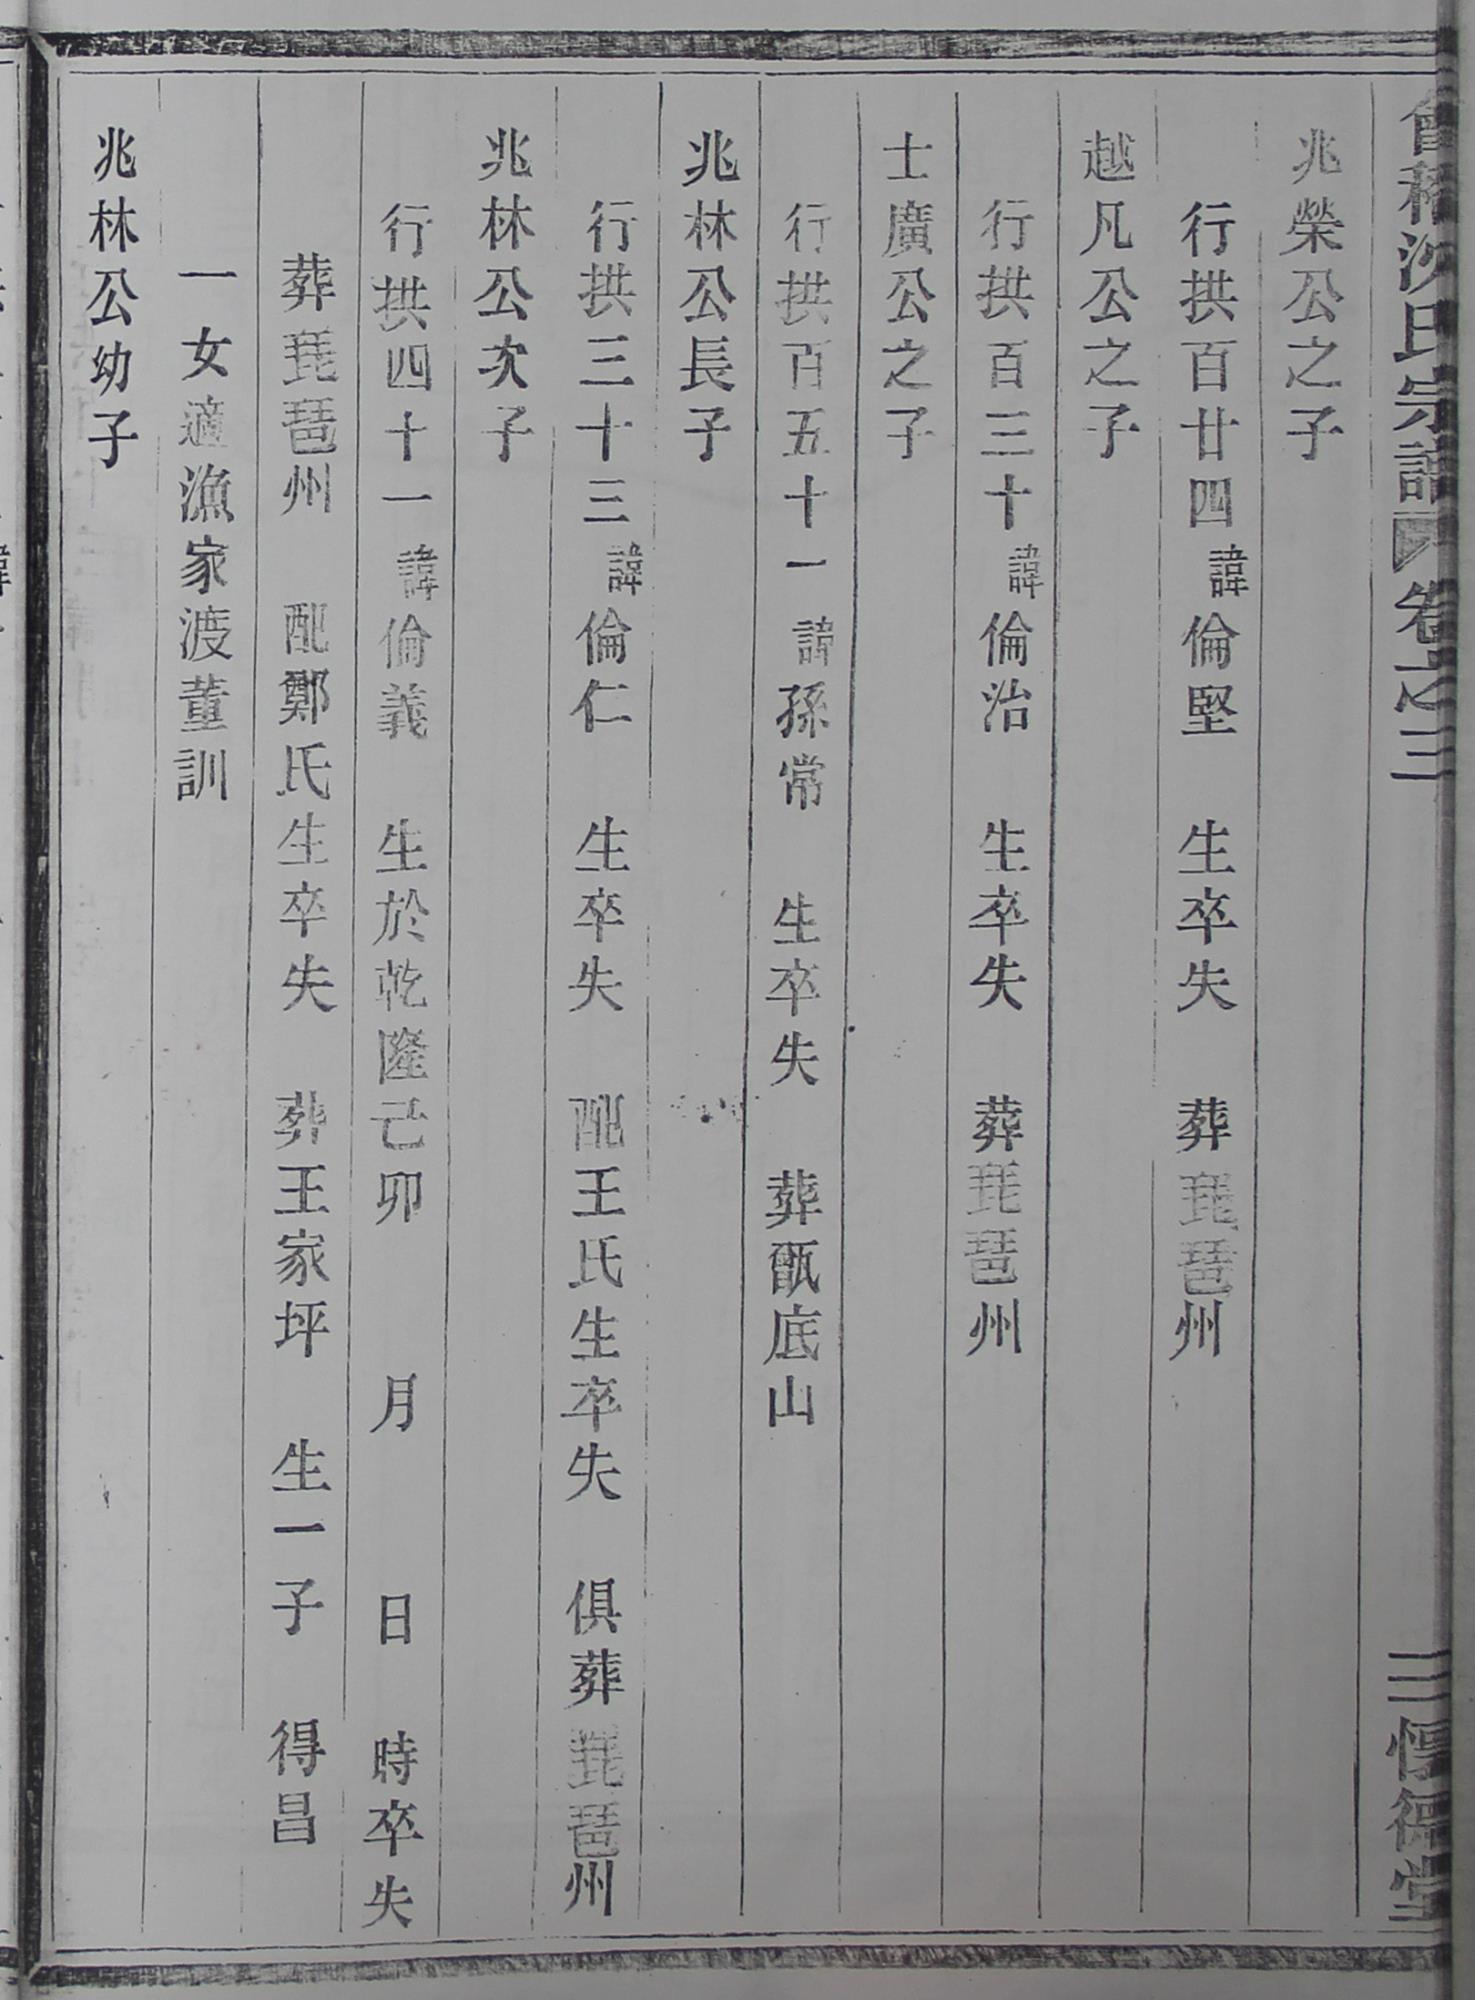 會稽沈氏宗譜 卷之三 三 惇德堂
兆榮公之子
行拱百廿四諱倫堅 生卒失 葬琵琶州
越凡公之子
行拱百三十諱倫治 生卒失 葬琵琶州
士廣公之子
行拱百五十一諱孫常 生卒失 葬甑底山
兆林公長子
行拱三十三諱倫仁 生卒失 配王氏生卒失 俱葬琵琶州
兆林公次子
行拱四十一諱倫義 生於乾隆己卯 月 日 時卒失
葬琵琶州 配鄭氏生卒失 葬王家坪 生一子 得昌
一女適漁家渡董訓
兆林公幼子